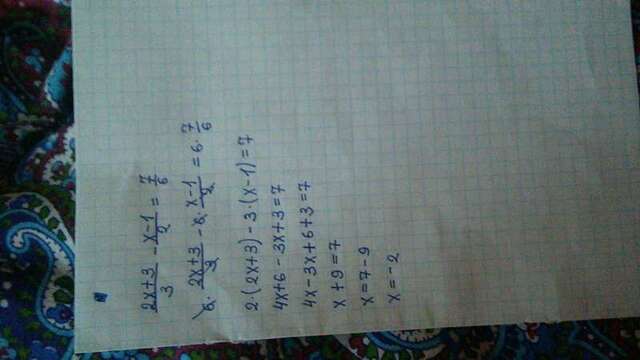 (2x+3)/3 - (x-1)/2 = 7/6
6· (2x+3)/3 - 6· (x-1)/2 = 6· 7/6
2·(2x+3)-3·(x-1)=7
4x+6-3x+3=7
4x-3x+6+3=7
x+9=7
x=7-9
x=-2